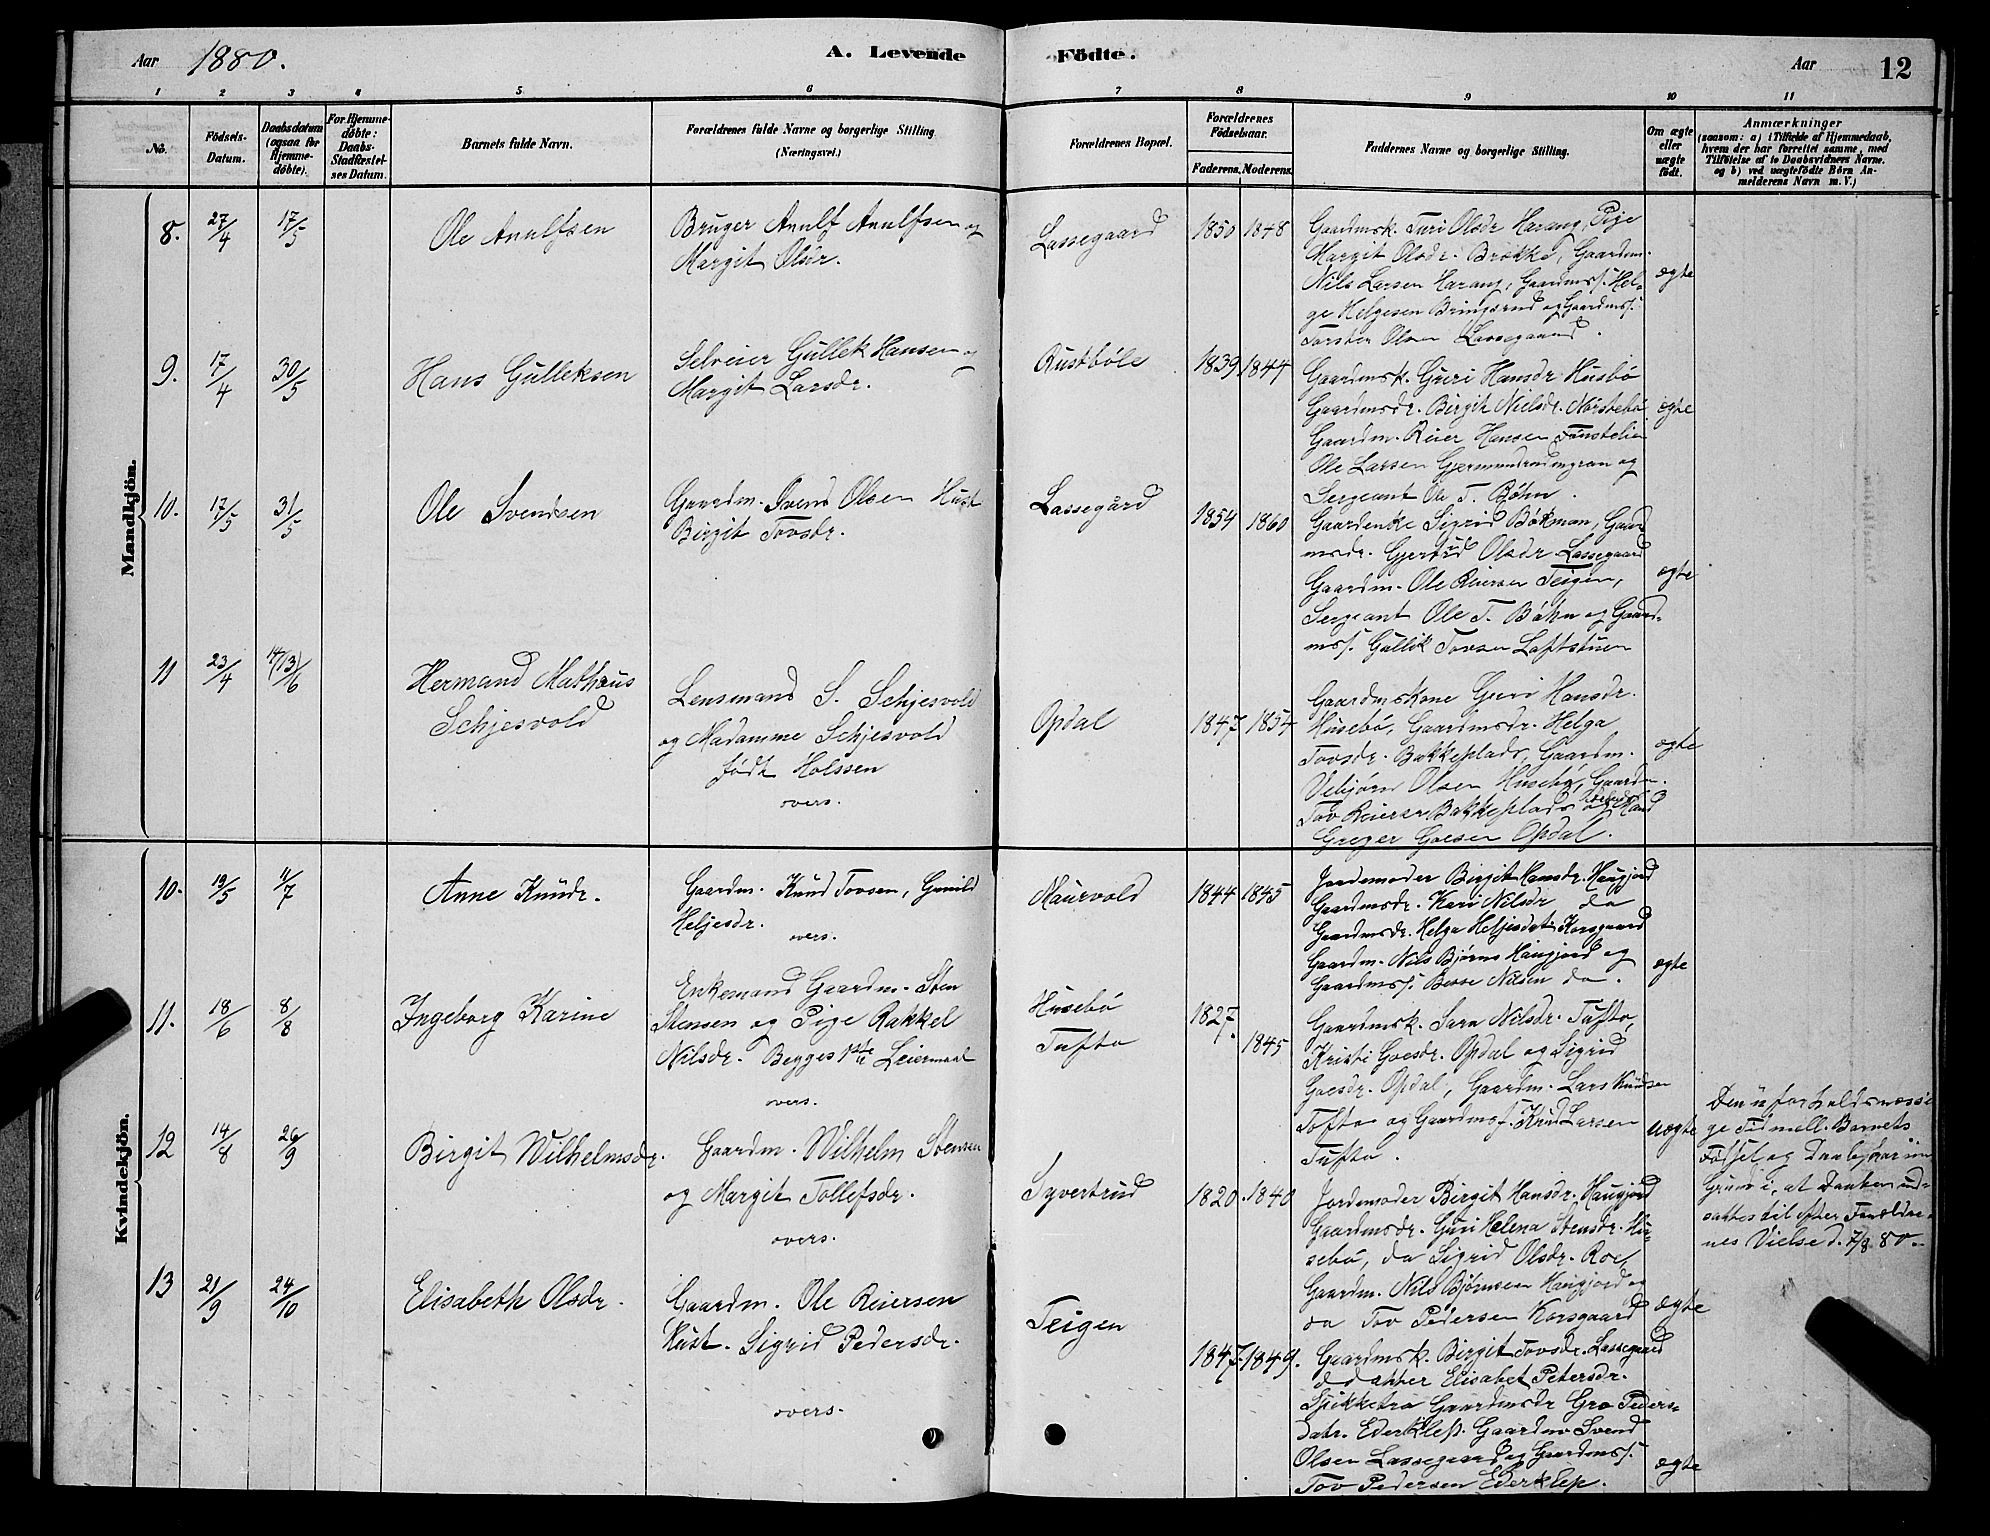 Aar 1880. A. Levende Födte. Aar 12
1 2 3 4 5 6 7 8 9 10 11
No.
Födsels-
Datum.
Daabsdatum
(ogsaa for
Hjemme-
döbte).
For Hjemme-
döbte:
Daabs-
Stadfæstel-
ses Datum.
Barnets fulde Navn.
Forældrenes fulde Navne og borgerlige Stilling
(Næringsvei.)
Forældrenes Bopæl.
Forældrenes
Födselsaar.
Faderens. Moderens.
Faddernes Navne og borgerlige Stilling.
Om ægte
eller
uægte
födt.
Anmærkninger
(saasom: a) i Tilfælde af Hjemmedaab,
hvem der har forrettet samme, med
Tilföielse af to Daabsvidners Navne.
og b) ved uægtefödte Börn An-
melderens Navn m. V.)
Mandkjön.
8. 27/4 17/5
Ole Anulfsen
Bruger Anulf Anulfsen og
Margit Olsdr.
Lassegaard
1850 1848
Gaardmsk. Turi Olsdr Harang, Pige
Margit Olsdr. Brække, Gaardm.
Nils Larsen Harang, Gaardmss. Hel-
ge Helgesen Bringerud og Gaardmss.
Torsten Olsen Lassegaard.
ægte
9. 17/4 30/5
Hans Gulleksen
Selveier Gullek Hansen og
Margit Larsdr.
Rustbøle
1839 1844
Gaardmsk. Guri Hansdr Husbø
Gaardmsdr. Birgit Nielsdr. Nørstebø
Gaardm. Reier Hansen Tønstelien
Ole Larsen Gjermundrudmoran og
Sergeant Ole T. Bøhn.
ægte
10. 17/5 31/5
Ole Svendsen
Gaardm. Svend Olsen Hust
Birgit Tovsdr.
Lassegård
1854 1860
Gaardenke Sigrid Bøkman, Gaard
msdr. Gjertrud Olsdr Lassegaard
Gaardm. Ole Reiersen Teigen,
Sergeant Ole T. Bøhn og Gaard-
mss. Gullik Tovsen Loftstuen
ægte
11 23/4 14/13/6
Hermand Mathæus
Schjesvold
Lensmand S. Schjesvold
og Madamme Schjesvold
født Holssen
overs.
Opdal
1847 1854
Gaardmskone Guri Hansdr.
Husebø, Gaardmsdr. Helga
Tovsdr. Bakkeplads, Gaardm.
Vebjørn Olsen Husebø, Gaardm.
Tov Reiersen Bakkeplads og Hand
Greger Goesen Opdal.
ægte
Kvindekjön.
10. 19/5 11/7
Anne Knudr.
Gaardm. Knud Tovsen, Gunild
Heljesdr.
overs.
Maurvold
1844 1845
Jordemoder Birgit Hansdr. Haugjord
Gaardmsdr. Kari Nilsdr do
Gaardmsdr. Helga Heljesdatr Korsgaard
Gaardm. Nils Bjørns Haugjord og
Gaardmss. Bosse Nilsen do.
ægte
11. 18/6 8/8
Ingeborg Karine
Enkemand Gaardm. Sten
Stensen og Pige Rakkel
Nilsdr. Begges 1ste Leiermaal
overs.
Husebø
Tufto
1827.
1845
Gaardmsk. Sara Nilsdr. Tufto,
Kristi Goesdr. Opdal og Sigrid
Goesdr. Opdal, Gaardm. Lars Knudsen
Tofto og Gaardmss. Knud Larsen
Tufto.
uægte
Den uforholdsmæssi-
ge Tid mell. Barnets
Fødsel og Daab har sin
Grund i, at Daaben ud-
sattes til efter Forældre-
nes Vielse d. 7/8 80.
12 14/8 26/9
Birgit Wilhelmsdr.
Gaardm. Wilhelm Stensen
og Margit Tollefsdr.
overs.
Syvertrud
1820. 1840
Jordemoder Birgit Hansdr. Haugjord
Gaardmsdr. Guri Helena Stensdr. Hu-
sebø, do Sigrid Olsdr. Roe,
Gaardm. Nils Bjørnsen Haugjord og
do Tov Pedersen Korsgaard
ægte
13 21/9 24/10
Elisabeth Olsdr.
Gaardm. Ole Reiersen
Hust. Sigrid Pedersdr.
overs.
Teigen
1847. 1849.
Gaardmsk. Birgit Tovsdr. Lassegaard
ddatter Elisabet Petersdr.
Gaardmsdr Gro Peders-
datr. Ederklep. Gaardm Svend
Olsen Lassegaard og Gaardmss.
Tov Pedersen Ederklep.
ægte